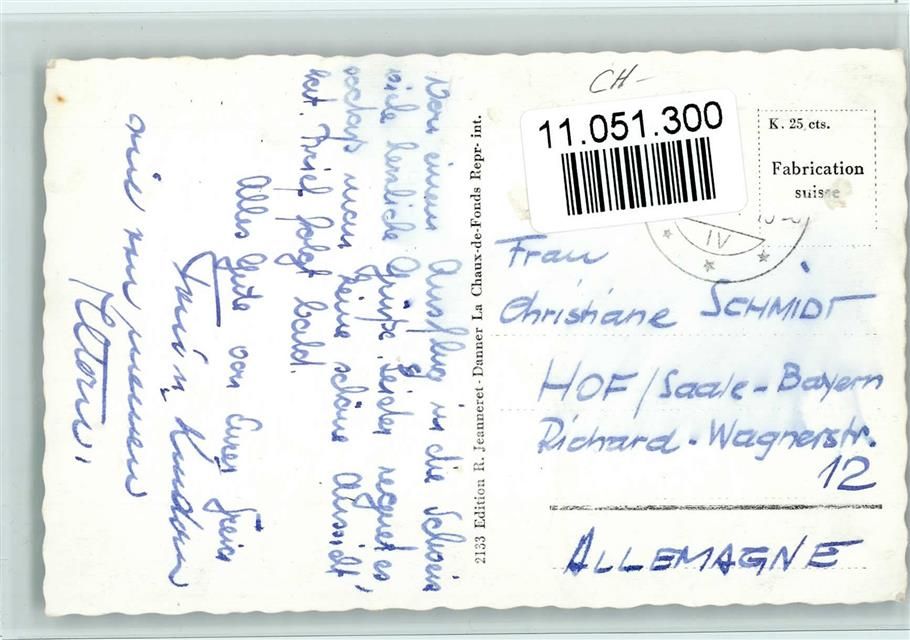 CH-
11.051.300
K. 25 cts.
Fabrication
suisse
IV
Frau
Christiane SCHMIDT
HOF/Saale-Bayern
Richard-Wagnerstr.
12
ALLEMAGNE
2133 Edition R. Jeanneret-Danner La Chaux-de-Fonds Repr- int.
Von einem Ausflug in die Schweiz
viele herzliche Grüße. Leider regnet es,
sodaß man keine schöne Aussicht
hat. Brief folgt bald.
Alles Gute von Eurer
Kindern
meinen
Eltern.